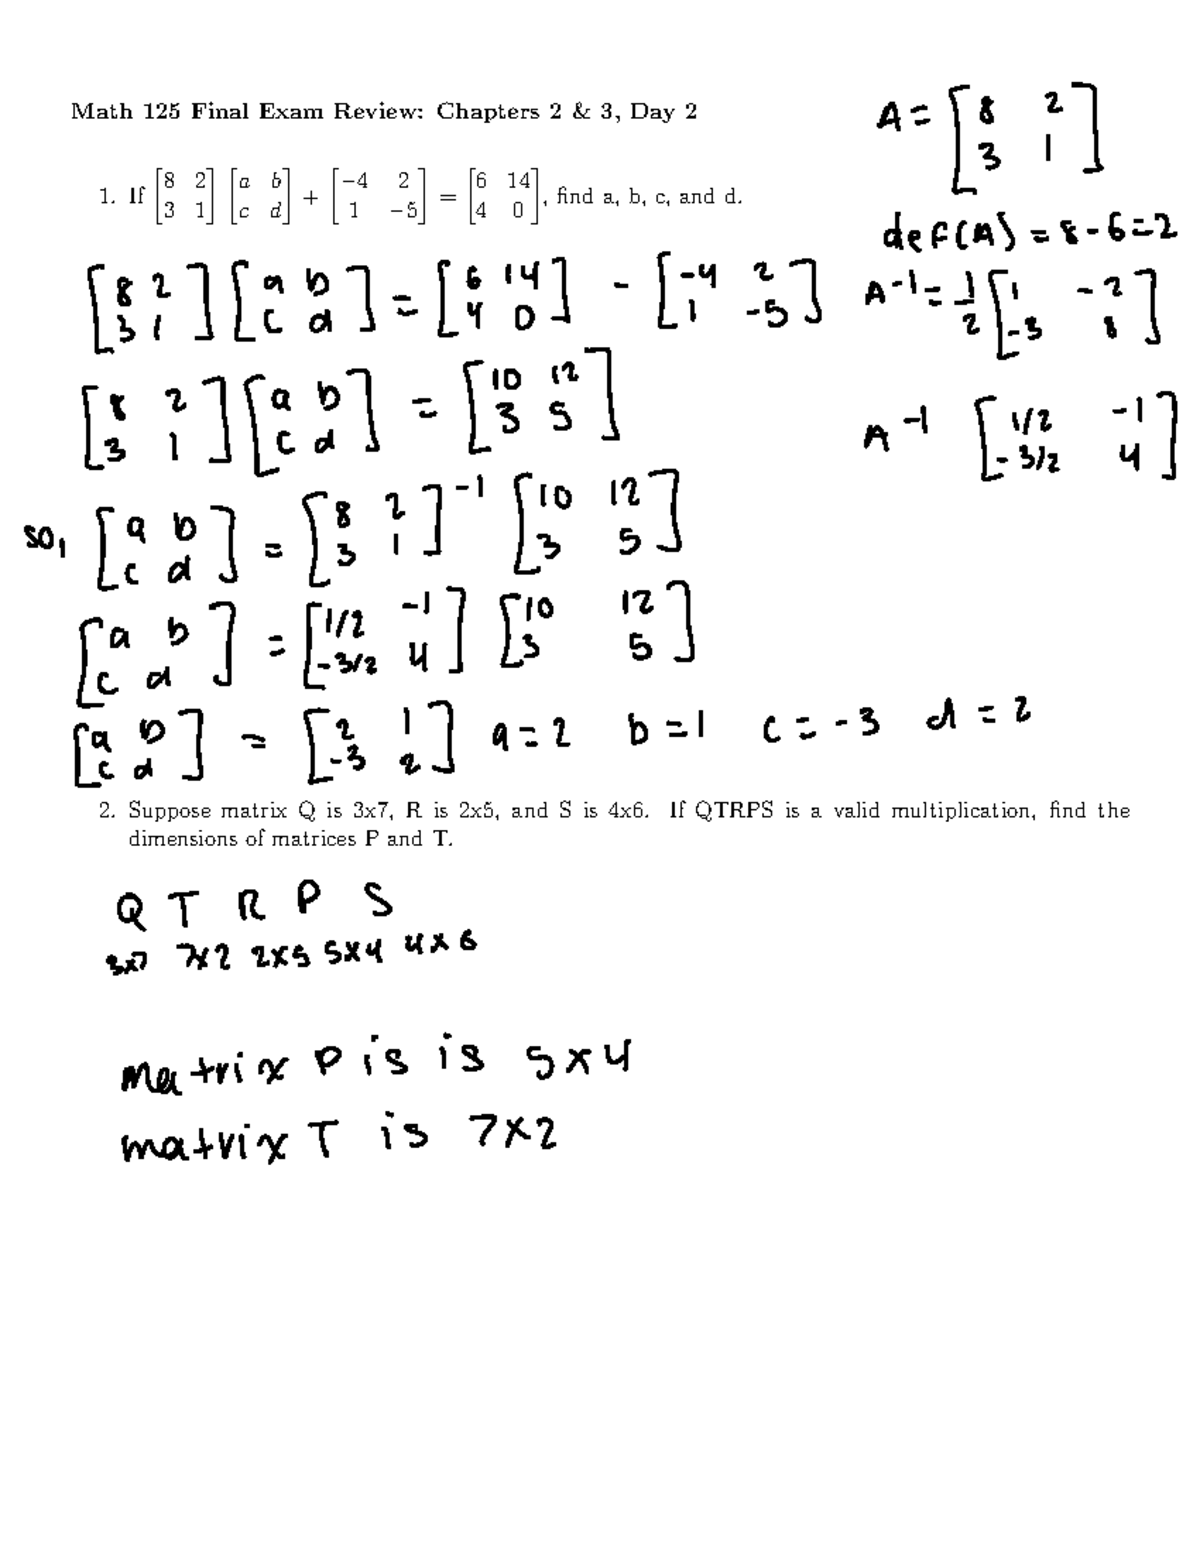 Math 125 Final Exam Review: Chapters 2 & 3, Day 2
A = [8 2; 3 1]
1. If [8 2; 3 1] [a b; c d] + [−4 2; 1 −5] = [6 14; 4 0], find a, b, c, and d.
def(A) = 8 - 6 = 2
[8 2; 3 1] [a b; c d] = [6 14; 4 0] - [-4 2; 1 -5]
A-1 = 1/2 [1 -2; -3 8]
[8 2; 3 1] [a b; c d] = [10 12; 3 5]
A-1 [1/2 -1; -3/2 4]
so, [a b; c d] = [8 2; 3 1]-1 [10 12; 3 5]
[a b; c d] = [1/2 -1; -3/2 4] [10 12; 3 5]
[a b; c d] = [2 1; -3 2] a=2 b=1 c=-3 d=2
2. Suppose matrix Q is 3x7, R is 2x5, and S is 4x6. If QTRPS is a valid multiplication, find the
dimensions of matrices P and T.
Q T R P S
3x7 7x2 2x5 5x4 4x6
matrix P is is 5x4
matrix T is 7x2